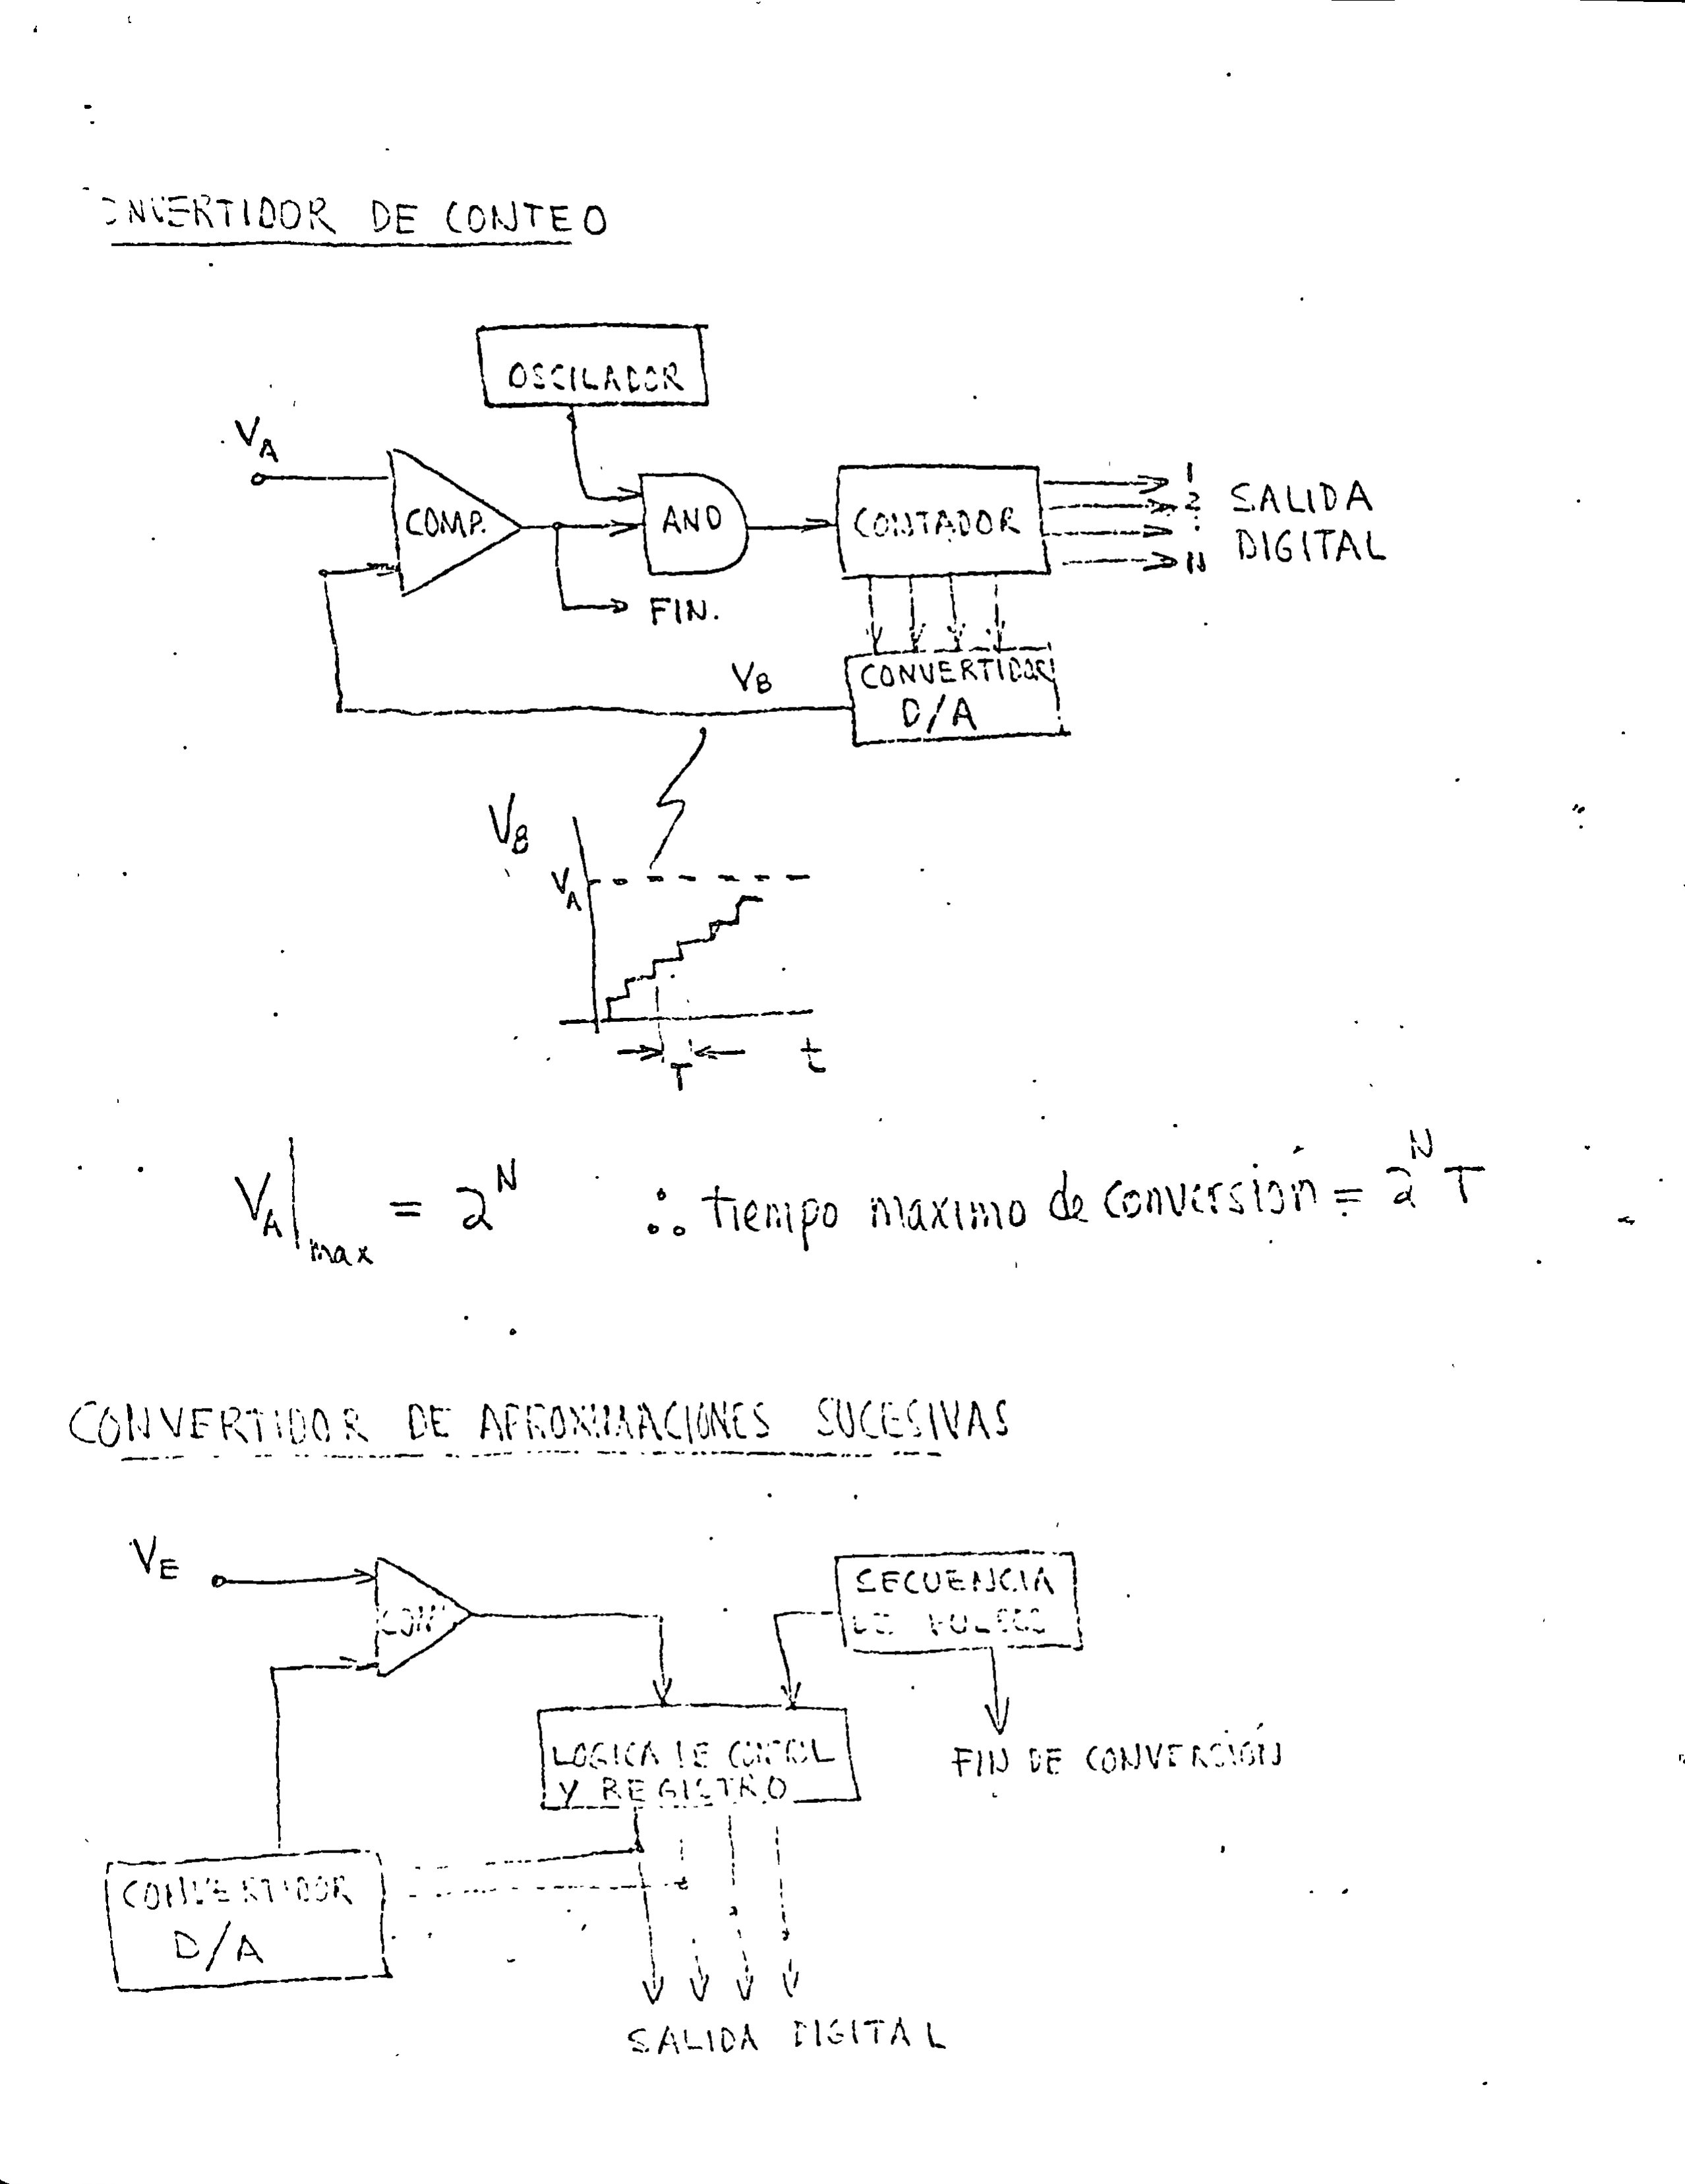 ONVERTIDOR DE CONTEO
OSCILADOR
VA
COMP.
AND
CONTADOR
1
2
:
N
SALIDA
DIGITAL
FIN.
VB
CONVERTIDOR
D/A
VB
VA
T
t
VA|max = 2^N ∴ tiempo maximo de conversión = 2^N T
CONVERTIDOR DE APROXIMACIONES SUCESIVAS
VE
COM
SECUENCIA
DE PULSOS
LOGICA DE CONTROL
Y REGISTRO
FIN DE CONVERSIÓN
CONVERTIDOR
D/A
SALIDA DIGITAL